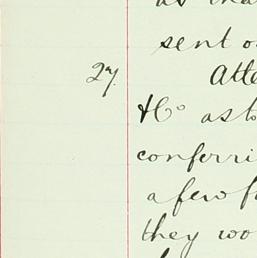 sent o
27. Atte
& Co as to
conferri
a few f
they wo